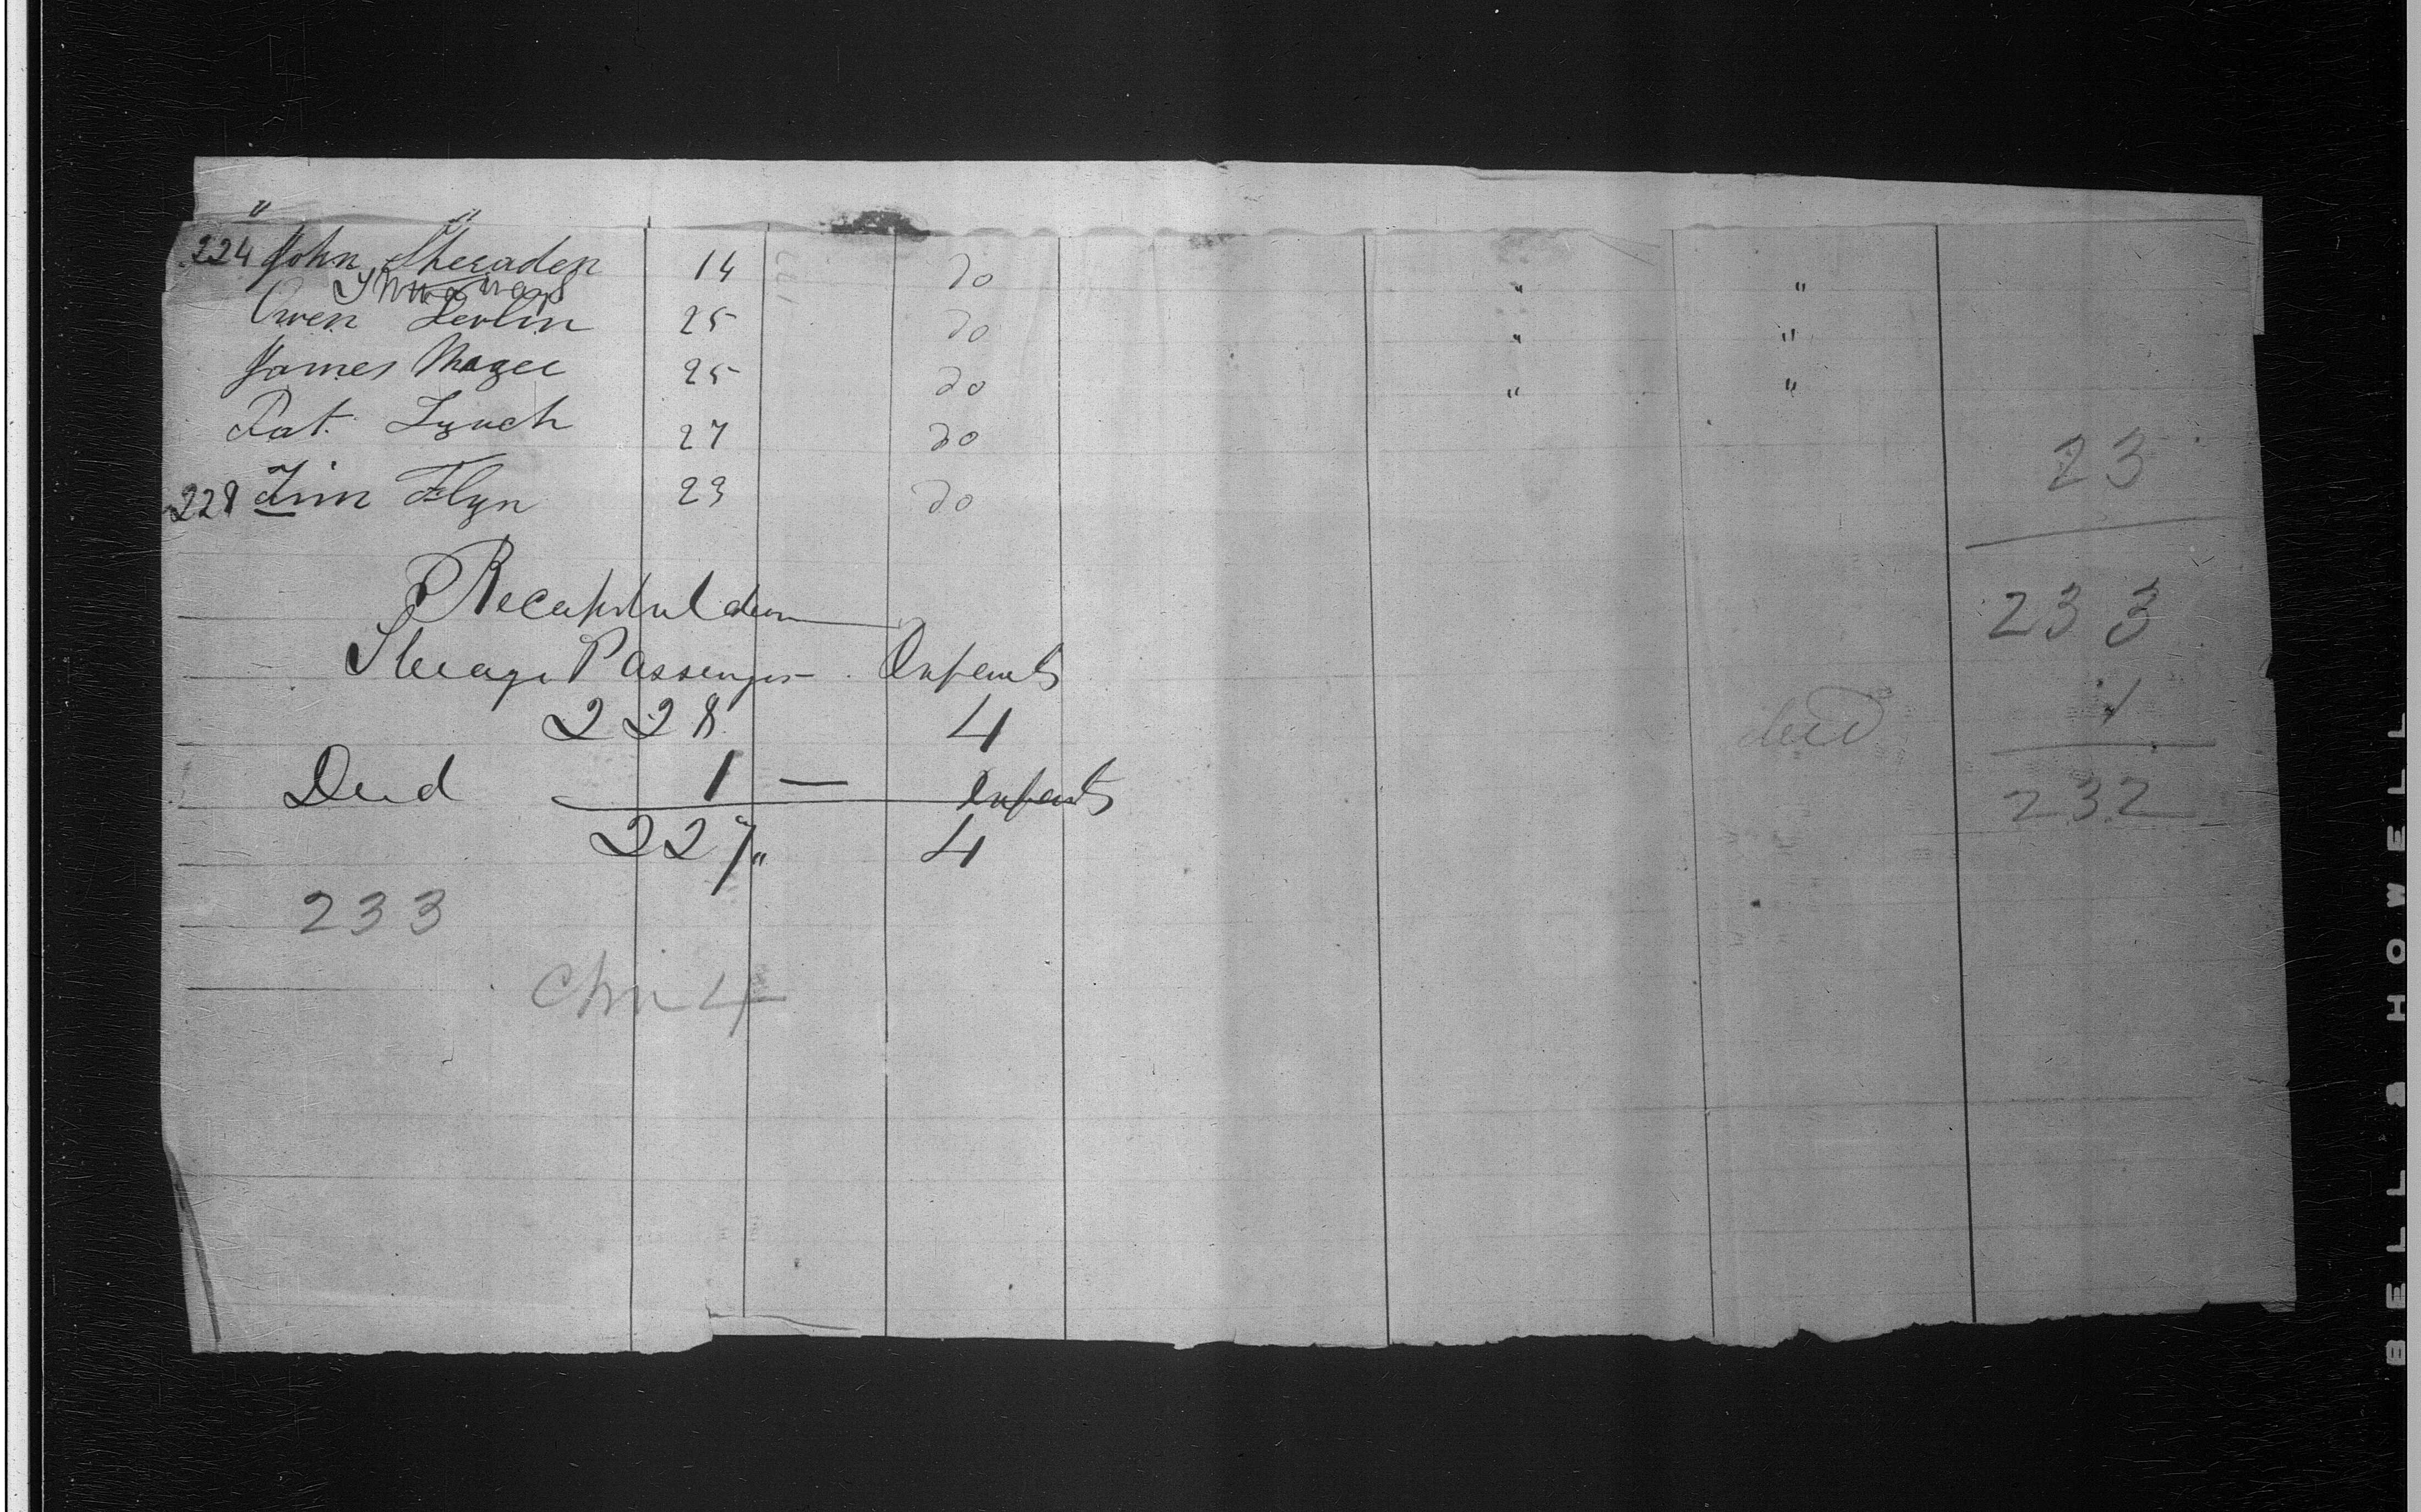 " "
224 John Sheraden 14 do " "
Owen Devlin 25 do " "
James Magee 25 do " "
Pat. Lynch 27 do
228 Tim Flyn 23 do
23
Recapitulation
233
Steerage Passengers Infants
228 4
died 1
Died 1 — Infants
232
227" 4
233
Chn 4
BELL & HOWELL